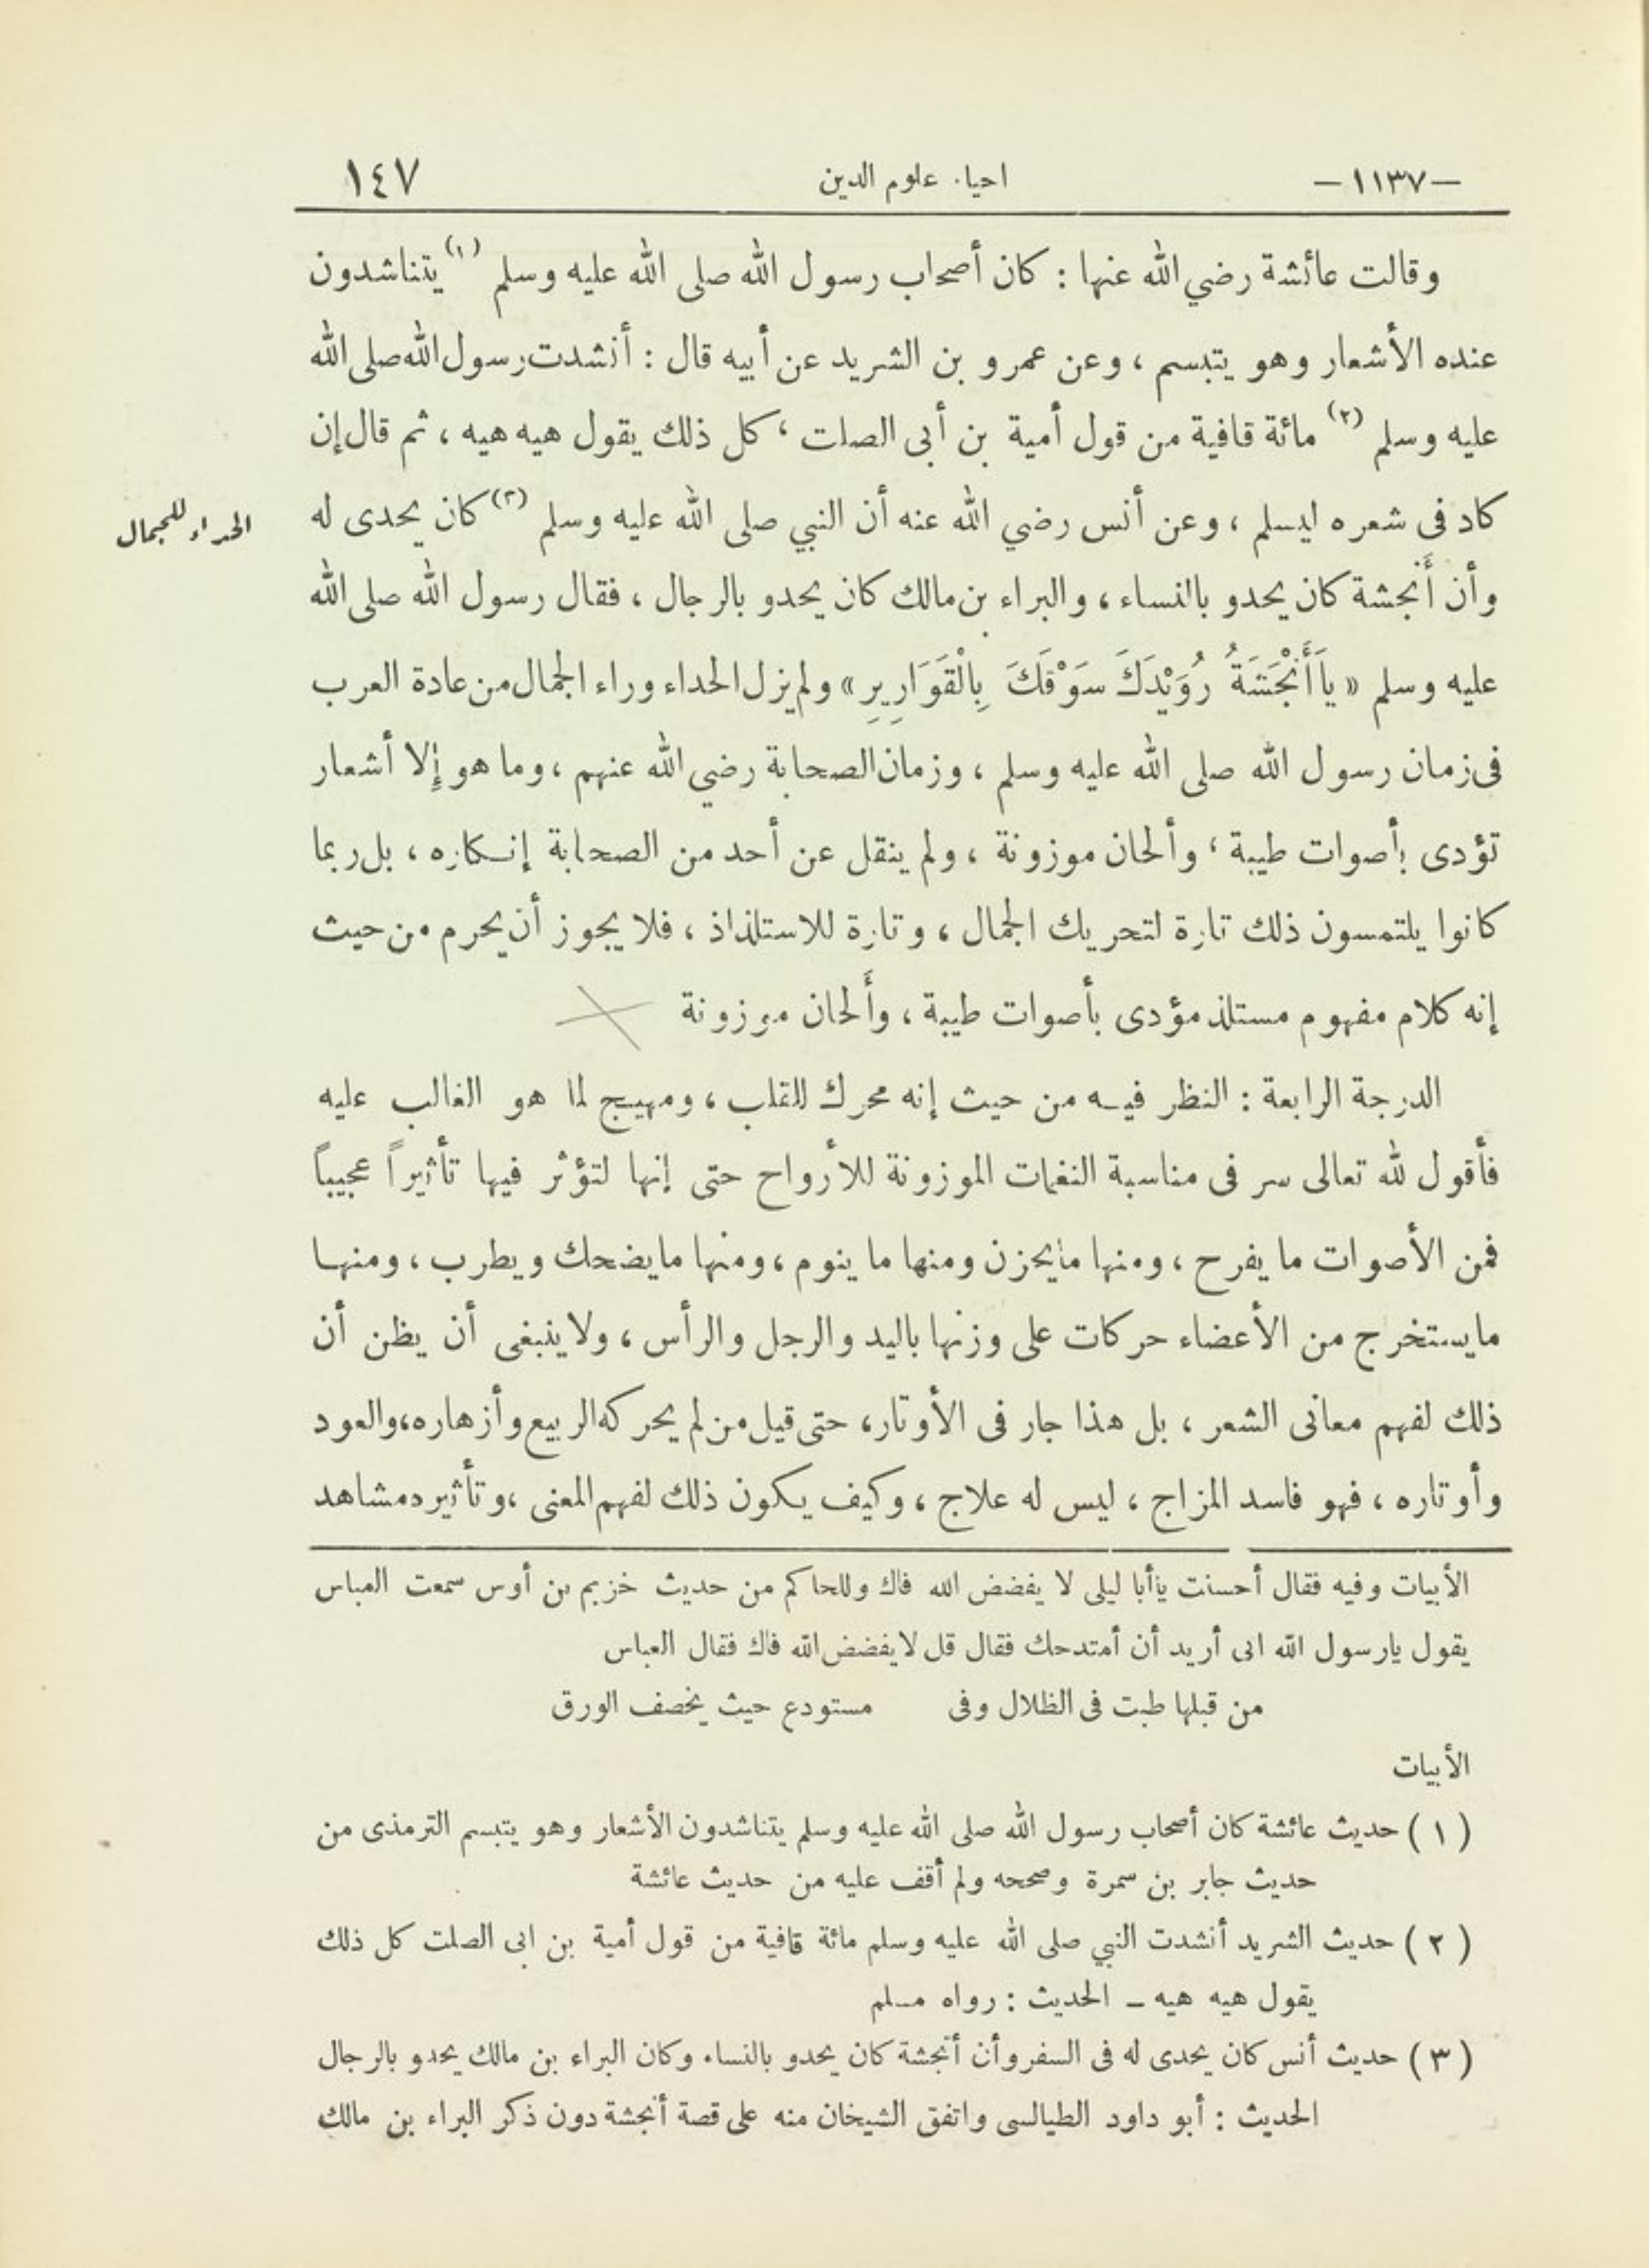 -١١٣٧- احياء علوم الدين ١٤٧
وقالت عائشة رضي الله عنها : كان أصحاب رسول الله صلى الله عليه وسلم (١) يتناشدون
عنده الأشعار وهو يتبسم ، وعن عمرو بن الشريد عن أبيه قال : أنشدت رسول الله صلى الله
عليه وسلم (٢) مائة قافية من قول أمية بن أبى الصلت ، كل ذلك يقول هيه هيه ، ثم قال إن
كاد فى شعره ليسلم ، وعن أنس رضي الله عنه أن النبي صلى الله عليه وسلم (٣) كان يحدى له
الحداء للجمال
وأن أَنجشة كان يحدو بالنساء ، والبراء بن مالك كان يحدو بالرجال ، فقال رسول الله صلى الله
عليه وسلم « يَا أَنْجَشَةُ رُوَيْدَكَ سَوْقَكَ بِالْقَوَارِيرِ » ولم يزل الحداء وراء الجمال من عادة العرب
فى زمان رسول الله صلى الله عليه وسلم ، وزمان الصحابة رضي الله عنهم ، وما هو إلا أشعار
تؤدى بأصوات طيبة ، وألحان موزونة ، ولم ينقل عن أحد من الصحابة إنكاره ، بل ربما
كانوا يلتمسون ذلك تارة لتحريك الجمال ، وتارة للاستلذاذ ، فلا يجوز أن يحرم من حيث
إنه كلام مفهوم مستلذ مؤدى بأصوات طيبة ، وأَلحان موزونة
الدرجة الرابعة : النظر فيه من حيث إنه محرك للقلب ، ومهيج لما هو الغالب عليه
فأقول لله تعالى سر فى مناسبة النغمات الموزونة للأرواح حتى إنها لتؤثر فيها تأثيراً عجيباً
فمن الأصوات ما يفرح ، ومنها ما يحزن ومنها ما ينوم ، ومنها ما يضحك ويطرب ، ومنها
ما يستخرج من الأعضاء حركات على وزنها باليد والرجل والرأس ، ولا ينبغى أن يظن أن
ذلك لفهم معانى الشعر ، بل هذا جار فى الأوتار ، حتى قيل من لم يحركه الربيع وأزهاره ، والعود
وأوتاره ، فهو فاسد المزاج ، ليس له علاج ، وكيف يكون ذلك لفهم المعنى ، وتأثيره مشاهد
الأبيات وفيه فقال أحسنت يا أبا ليلى لا يفضض الله فاك وللحاكم من حديث خزيم بن أوس سمعت العباس
يقول يارسول الله انى أريد أن أمتدحك فقال قل لا يفضض الله فاك فقال العباس
من قبلها طبت فى الظلال وفى مستودع حيث يخصف الورق
الأبيات
( ١ ) حديث عائشة كان أصحاب رسول الله صلى الله عليه وسلم يتناشدون الأشعار وهو يتبسم الترمذى من
حديث جابر بن سمرة وصححه ولم أقف عليه من حديث عائشة
( ٢ ) حديث الشريد أنشدت النبي صلى الله عليه وسلم مائة قافية من قول أمية بن ابى الصلت كل ذلك
يقول هيه هيه - الحديث : رواه مسلم
( ٣ ) حديث أنس كان يحدى له فى السفر وأن أنجشة كان يحدو بالنساء وكان البراء بن مالك يحدو بالرجال
الحديث : أبو داود الطيالسى واتفق الشيخان منه على قصة أنجشة دون ذكر البراء بن مالك